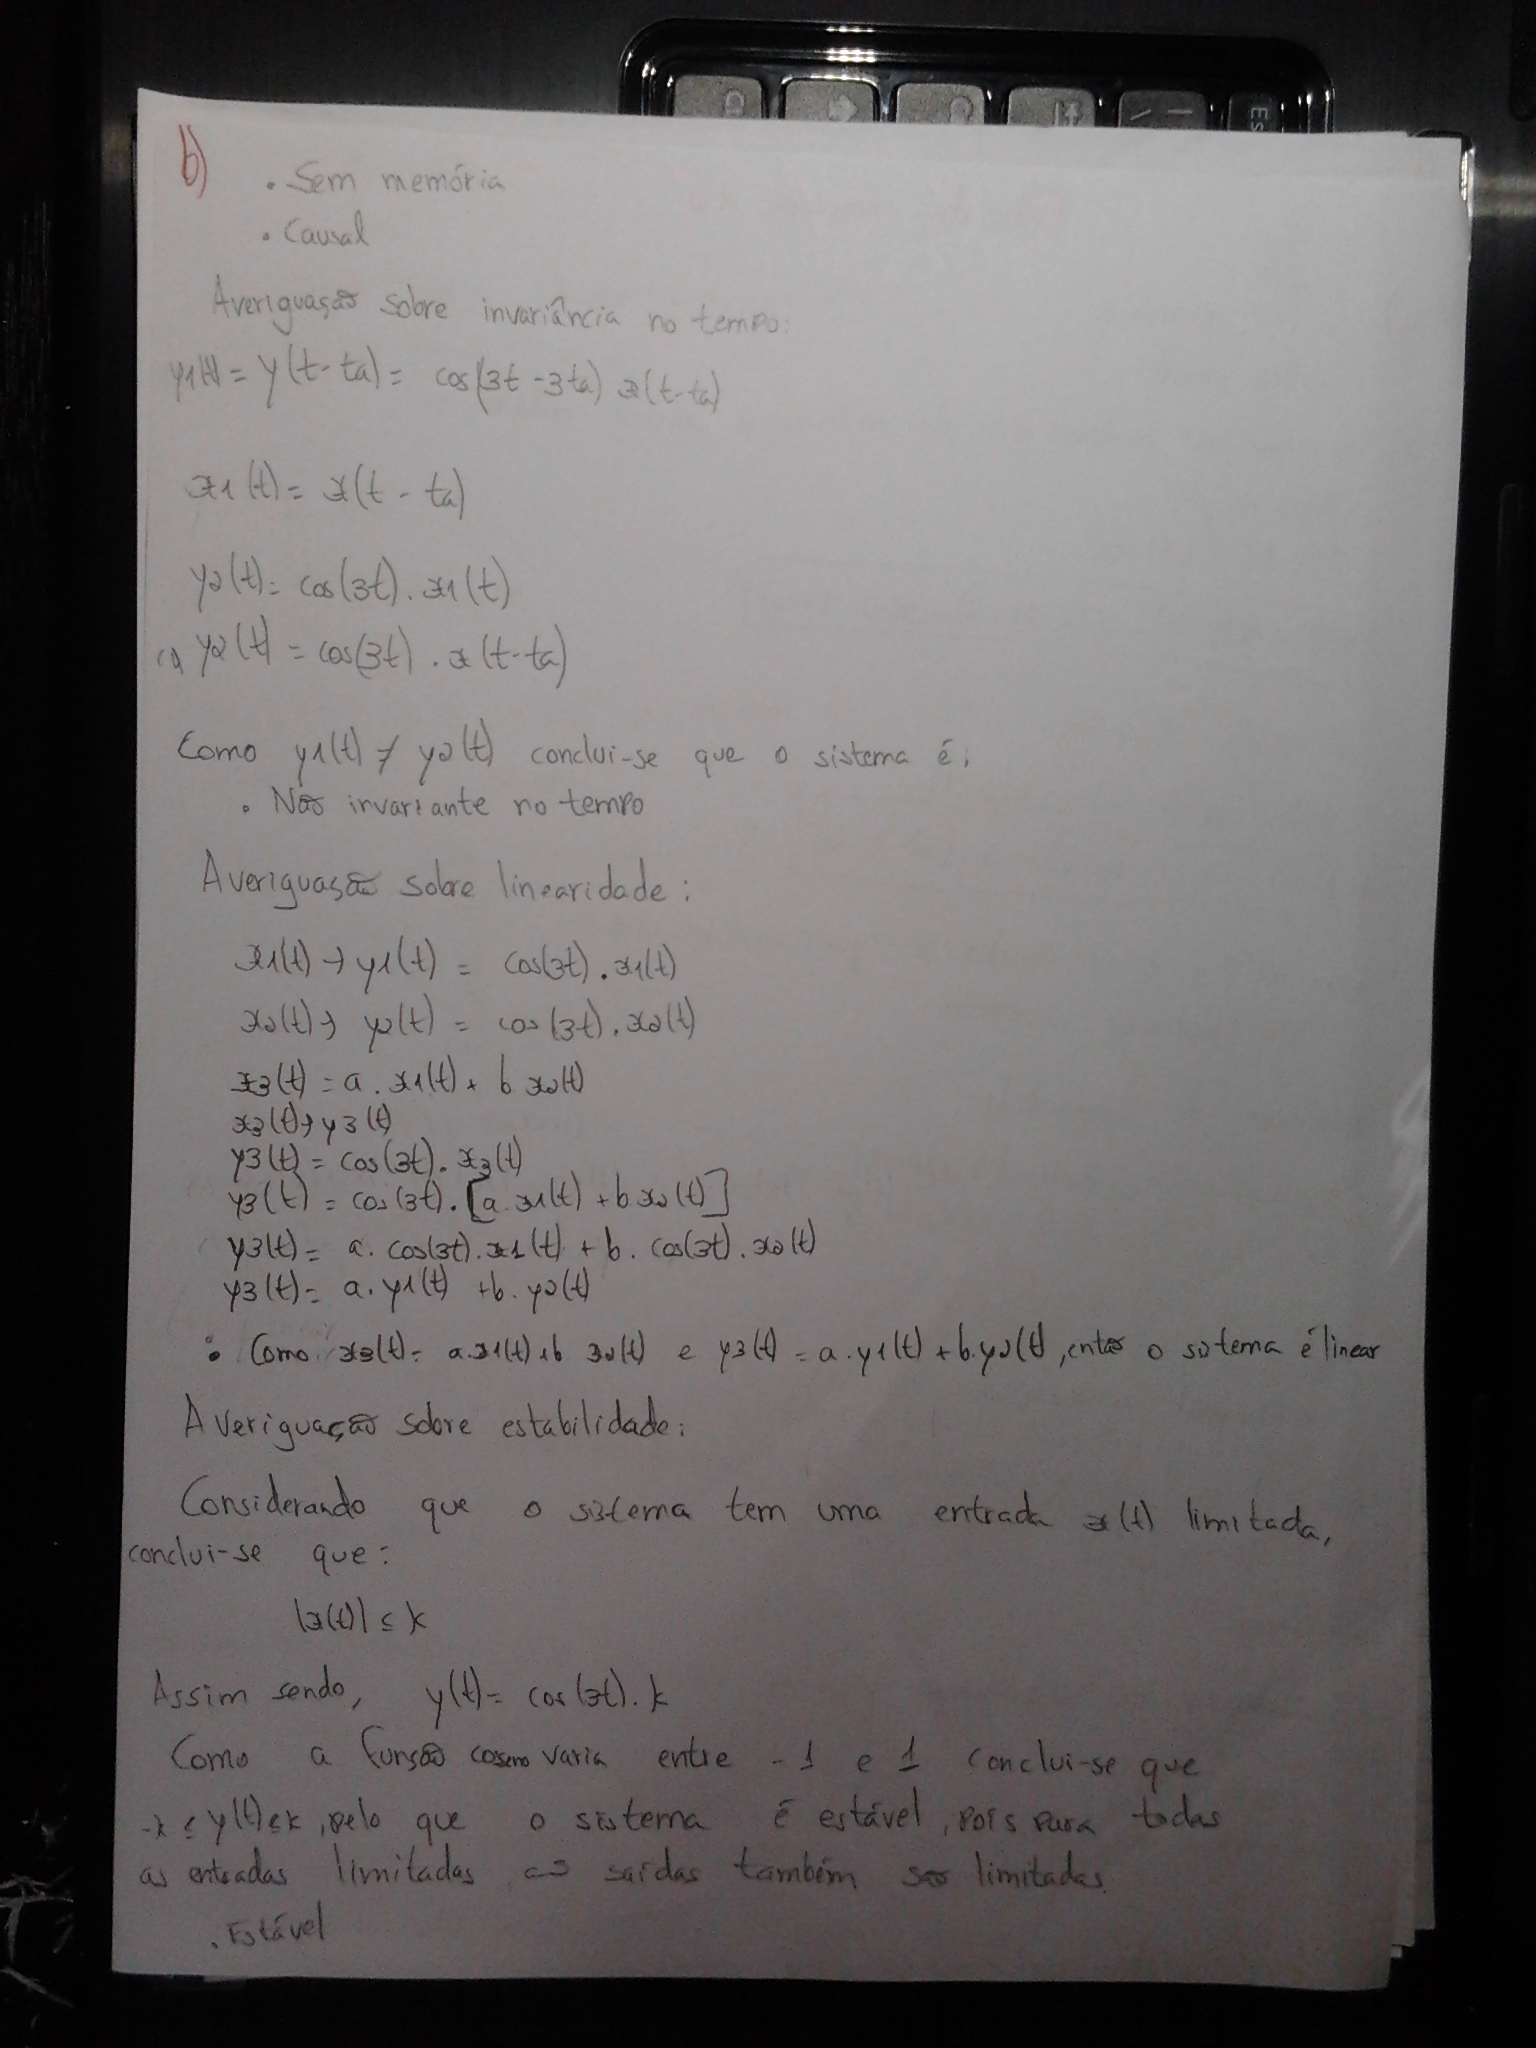 b)
• Sem memória
• Causal
Averiguação sobre invariância no tempo:
y1(t) = y(t-ta) = cos(3t-3ta) x(t-ta)
x1(t) = x(t-ta)
y2(t) = cos(3t).x1(t)
y2(t) = cos(3t).x(t-ta)
Como y1(t) ≠ y2(t) conclui-se que o sistema é:
• Não invariante no tempo
Averiguação sobre linearidade:
x1(t) → y1(t) = cos(3t).x1(t)
x2(t) → y2(t) = cos(3t).x2(t)
x3(t) = a.x1(t) + b x2(t)
x3(t) → y3(t)
y3(t) = cos(3t).x3(t)
y3(t) = cos(3t).[a.x1(t) + b.x2(t)]
y3(t) = a.cos(3t).x1(t) + b.cos(3t).x2(t)
y3(t) = a.y1(t) + b.y2(t)
Como x3(t) = a.x1(t) + b x2(t) e y3(t) = a.y1(t) + b.y2(t), então o sistema é linear
Averiguação sobre estabilidade:
Considerando que o sistema tem uma entrada x(t) limitada,
conclui-se que:
|x(t)| ≤ k
Assim sendo, y(t) = cos(3t).k
Como a função coseno varia entre -1 e 1 conclui-se que
-k ≤ y(t) ≤ k, pelo que o sistema é estável, pois para todas
as entradas limitadas as saídas também são limitadas.
. Estável
Es